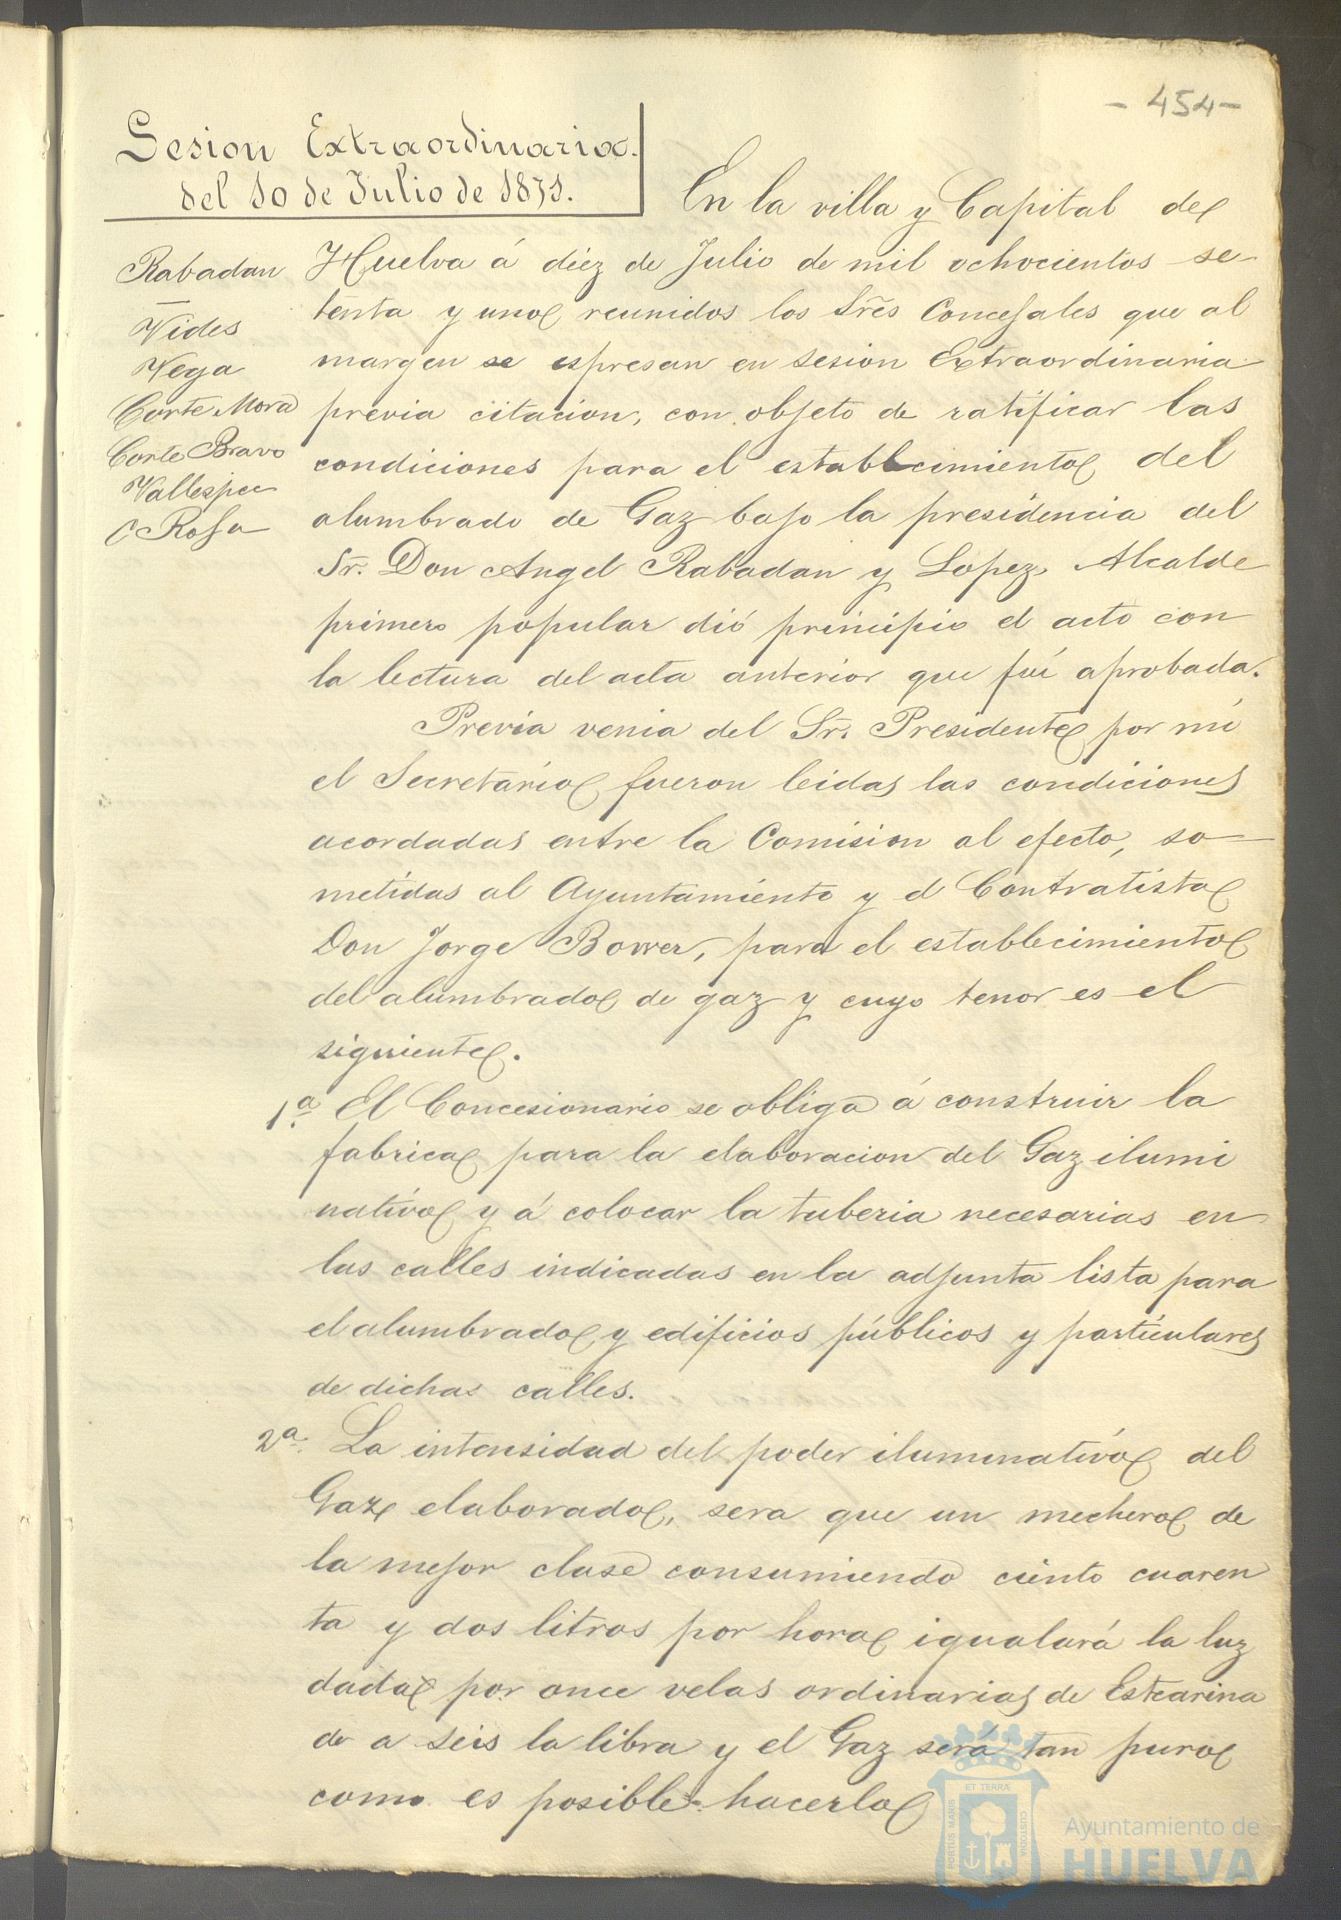 - 454 -
Sesion Extraordinaria.
del 10 de Julio de 1871.
Rabadan
Vides
Vega
Corte Mora
Corte Bravo
Vallespin
C Rosa
En la villa y Capital de
Huelva á diez de Julio de mil ochocientos se-
tenta y uno reunidos los Srẽs Concejales que al
margen se espresan en sesion Extraordinaria
previa citacion, con objeto de ratificar las
condiciones para el establecimiento del
alumbrado de Gaz bajo la presidencia del
Sr. Don Angel Rabadan y Lopez, Alcalde
primero popular dió principio el acto con
la lectura del acta anterior que fué aprobada.
Previa venia del Sr. Presidente por mi
el Secretario fueron leidas las condiciones
acordadas entre la Comision al efecto, so-
metidas al Ayuntamiento y el Contratista
Don Jorge Bower, para el establecimiento
del alumbrado de gaz y cuyo tenor es el
siguiente.
1.ª El Concesionario se obliga á construir la
fabrica para la elaboracion del Gaz ilumi
nativo y á colocar la tuberia necesarias en
las calles indicadas en la adjunta lista para
el alumbrado y edificios públicos y particulares
de dichas calles.
2ª. La intensidad del poder iluminativo del
Gaz elaborado, sera que un mechero de
la mejor clase consumiendo ciento cuaren
ta y dos litros por hora igualará la luz
dada por once velas ordinarias de Estearina
de a seis la libra y el Gaz será tan puro
como es posible hacerlo
PORTUS MARIS ET TERRÆ CUSTODIA
Ayuntamiento de
HUELVA